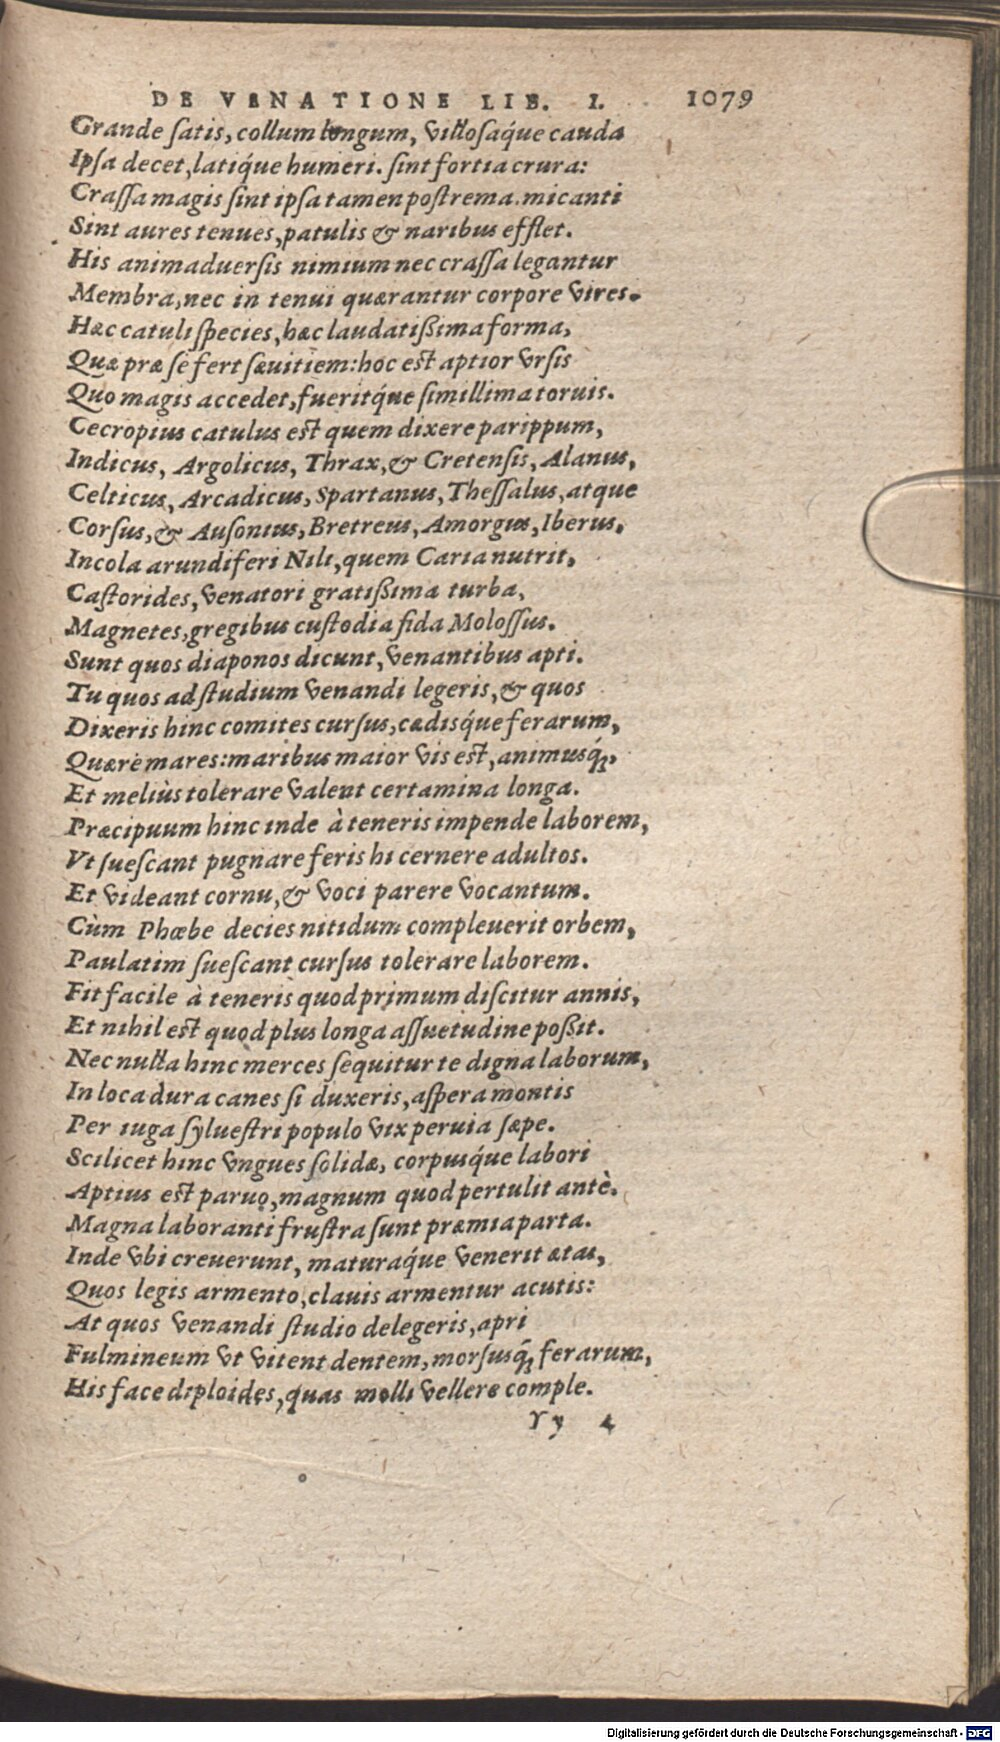 DE VENATIONE LIB. I. 1079
Grande ſatis, collum longum, villoſaq́ue cauda
Ipſa decet, latiq́ue humeri. ſint fortia crura:
Craſſa magis ſint ipſa tamen poſtrema. micanti
Sint aures tenues, patulis & naribus efflet.
His animaduerſis nimium nec craſſa legantur
Membra, nec in tenui quærantur corpore vires.
Hæc catuli ſpecies, hæc laudatißima forma,
Quæ præ ſe fert ſæuitiem: hoc est aptior vrſis
Quo magis accedet, fueritq́ue ſimillima toruis.
Cecropius catulus est quem dixere parippum,
Indicus, Argolicus, Thrax, & Cretenſis, Alanus,
Celticus, Arcadicus, Spartanus, Theſſalus, atque
Corſus, & Auſonius, Bretreus, Amorgus, Iberus,
Incola arundiferi Nili, quem Caria nutrit,
Caſtorides, venatori gratißima turba,
Magnetes, gregibus custodia fida Moloſſus.
Sunt quos diaponos dicunt, venantibus apti.
Tu quos ad ſtudium venandi legeris, & quos
Dixeris hinc comites curſus, cædisq́ue ferarum,
Quære mares: maribus maior vis est, animusq́;,
Et meliùs tolerare valent certamina longa.
Præcipuum hinc inde à teneris impende laborem,
Vt ſueſcant pugnare feris hi cernere adultos.
Et videant cornu, & voci parere vocantum.
Cùm Phœbe decies nitidum compleuerit orbem,
Paulatim ſueſcant curſus tolerare laborem.
Fit facile à teneris quod primum diſcitur annis,
Et nihil est quod plus longa aſſuetudine poßit.
Nec nulla hinc merces ſequitur te digna laborum,
In loca dura canes ſi duxeris, aſpera montis
Per iuga ſylueſtri populo vix peruia ſæpe.
Scilicet hinc vngues ſolidæ, corpusq́ue labori
Aptius est paruo, magnum quod pertulit antè.
Magna laboranti fruſtra ſunt præmia parta.
Inde vbi creuerunt, maturaq́ue venerit ætas,
Quos legis armento, clauis armentur acutis:
At quos venandi ſtudio delegeris, apri
Fulmineum vt vitent dentem, morſusq́; ferarum,
His face diploides, quas molli vellere comple.
Yy 4
Digitalisierung gefördert durch die Deutsche Forschungsgemeinschaft - DFG